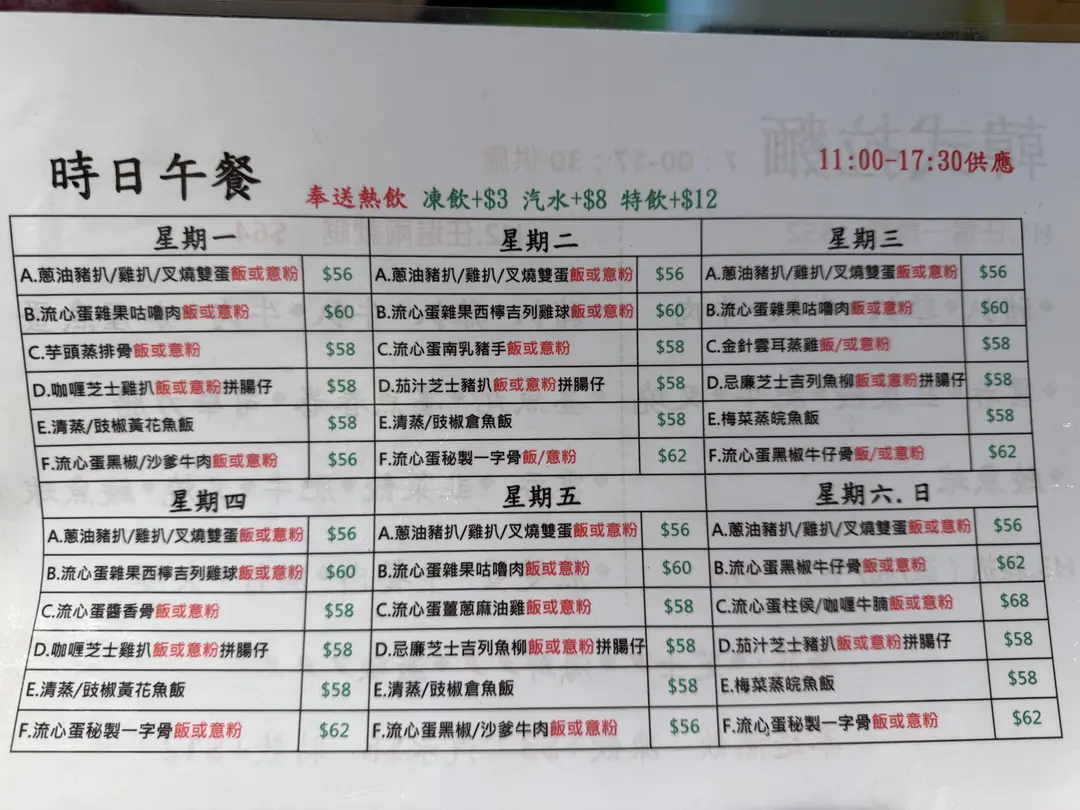 時日午餐
11:00-17:30供應
奉送熱飲 凍飲+$3 汽水+$8 特飲+$12
星期一
A.蔥油豬扒/雞扒/叉燒雙蛋飯或意粉 $56
B.流心蛋雜果咕嚕肉飯或意粉 $60
C.芋頭蒸排骨飯或意粉 $58
D.咖喱芝士雞扒飯或意粉拼腸仔 $58
E.清蒸/豉椒黃花魚飯 $58
F.流心蛋黑椒/沙爹牛肉飯或意粉 $56
星期二
A.蔥油豬扒/雞扒/叉燒雙蛋飯或意粉 $56
B.流心蛋雜果西檸吉列雞球飯或意粉 $60
C.流心蛋南乳豬手飯或意粉 $58
D.茄汁芝士豬扒飯或意粉拼腸仔 $58
E.清蒸/豉椒倉魚飯 $58
F.流心蛋秘製一字骨飯/意粉 $62
星期三
A.蔥油豬扒/雞扒/叉燒雙蛋飯或意粉 $56
B.流心蛋雜果咕嚕肉飯或意粉 $60
C.金針雲耳蒸雞飯/或意粉 $58
D.忌廉芝士吉列魚柳飯或意粉拼腸仔 $58
E.梅菜蒸皖魚飯 $58
F.流心蛋黑椒牛仔骨飯/或意粉 $62
星期四
A.蔥油豬扒/雞扒/叉燒雙蛋飯或意粉 $56
B.流心蛋雜果西檸吉列雞球飯或意粉 $60
C.流心蛋醬香骨飯或意粉 $58
D.咖喱芝士雞扒飯或意粉拼腸仔 $58
E.清蒸/豉椒黃花魚飯 $58
F.流心蛋秘製一字骨飯或意粉 $62
星期五
A.蔥油豬扒/雞扒/叉燒雙蛋飯或意粉 $56
B.流心蛋雜果咕嚕肉飯或意粉 $60
C.流心蛋薑蔥麻油雞飯或意粉 $58
D.忌廉芝士吉列魚柳飯或意粉拼腸仔 $58
E.清蒸/豉椒倉魚飯 $58
F.流心蛋黑椒/沙爹牛肉飯或意粉 $56
星期六.日
A.蔥油豬扒/雞扒/叉燒雙蛋飯或意粉 $56
B.流心蛋黑椒牛仔骨飯或意粉 $62
C.流心蛋柱侯/咖喱牛腩飯或意粉 $68
D.茄汁芝士豬扒飯或意粉拼腸仔 $58
E.梅菜蒸皖魚飯 $58
F.流心蛋秘製一字骨飯或意粉 $62